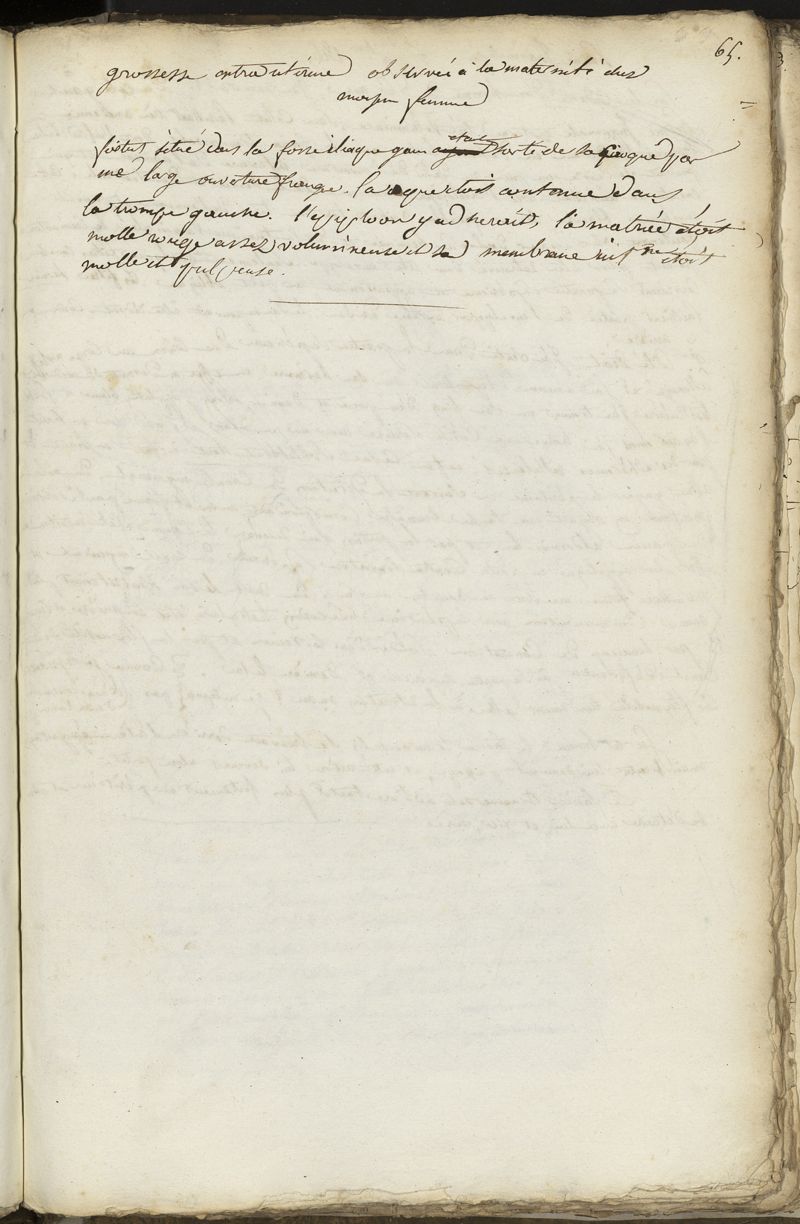 65.
grossesse extra utérine observée à la maternité chez
femme
foetus situé dans la fosse iliaque gau etoit sorti de sa poque par
une large ouverture frangé. la étoit contenue dans
la trompe gauche. l'epiploon y adheroit, la matrice étoit
molle rouge assez volumineuse et sa membrane int ne étoit
molle et pulpeuse.